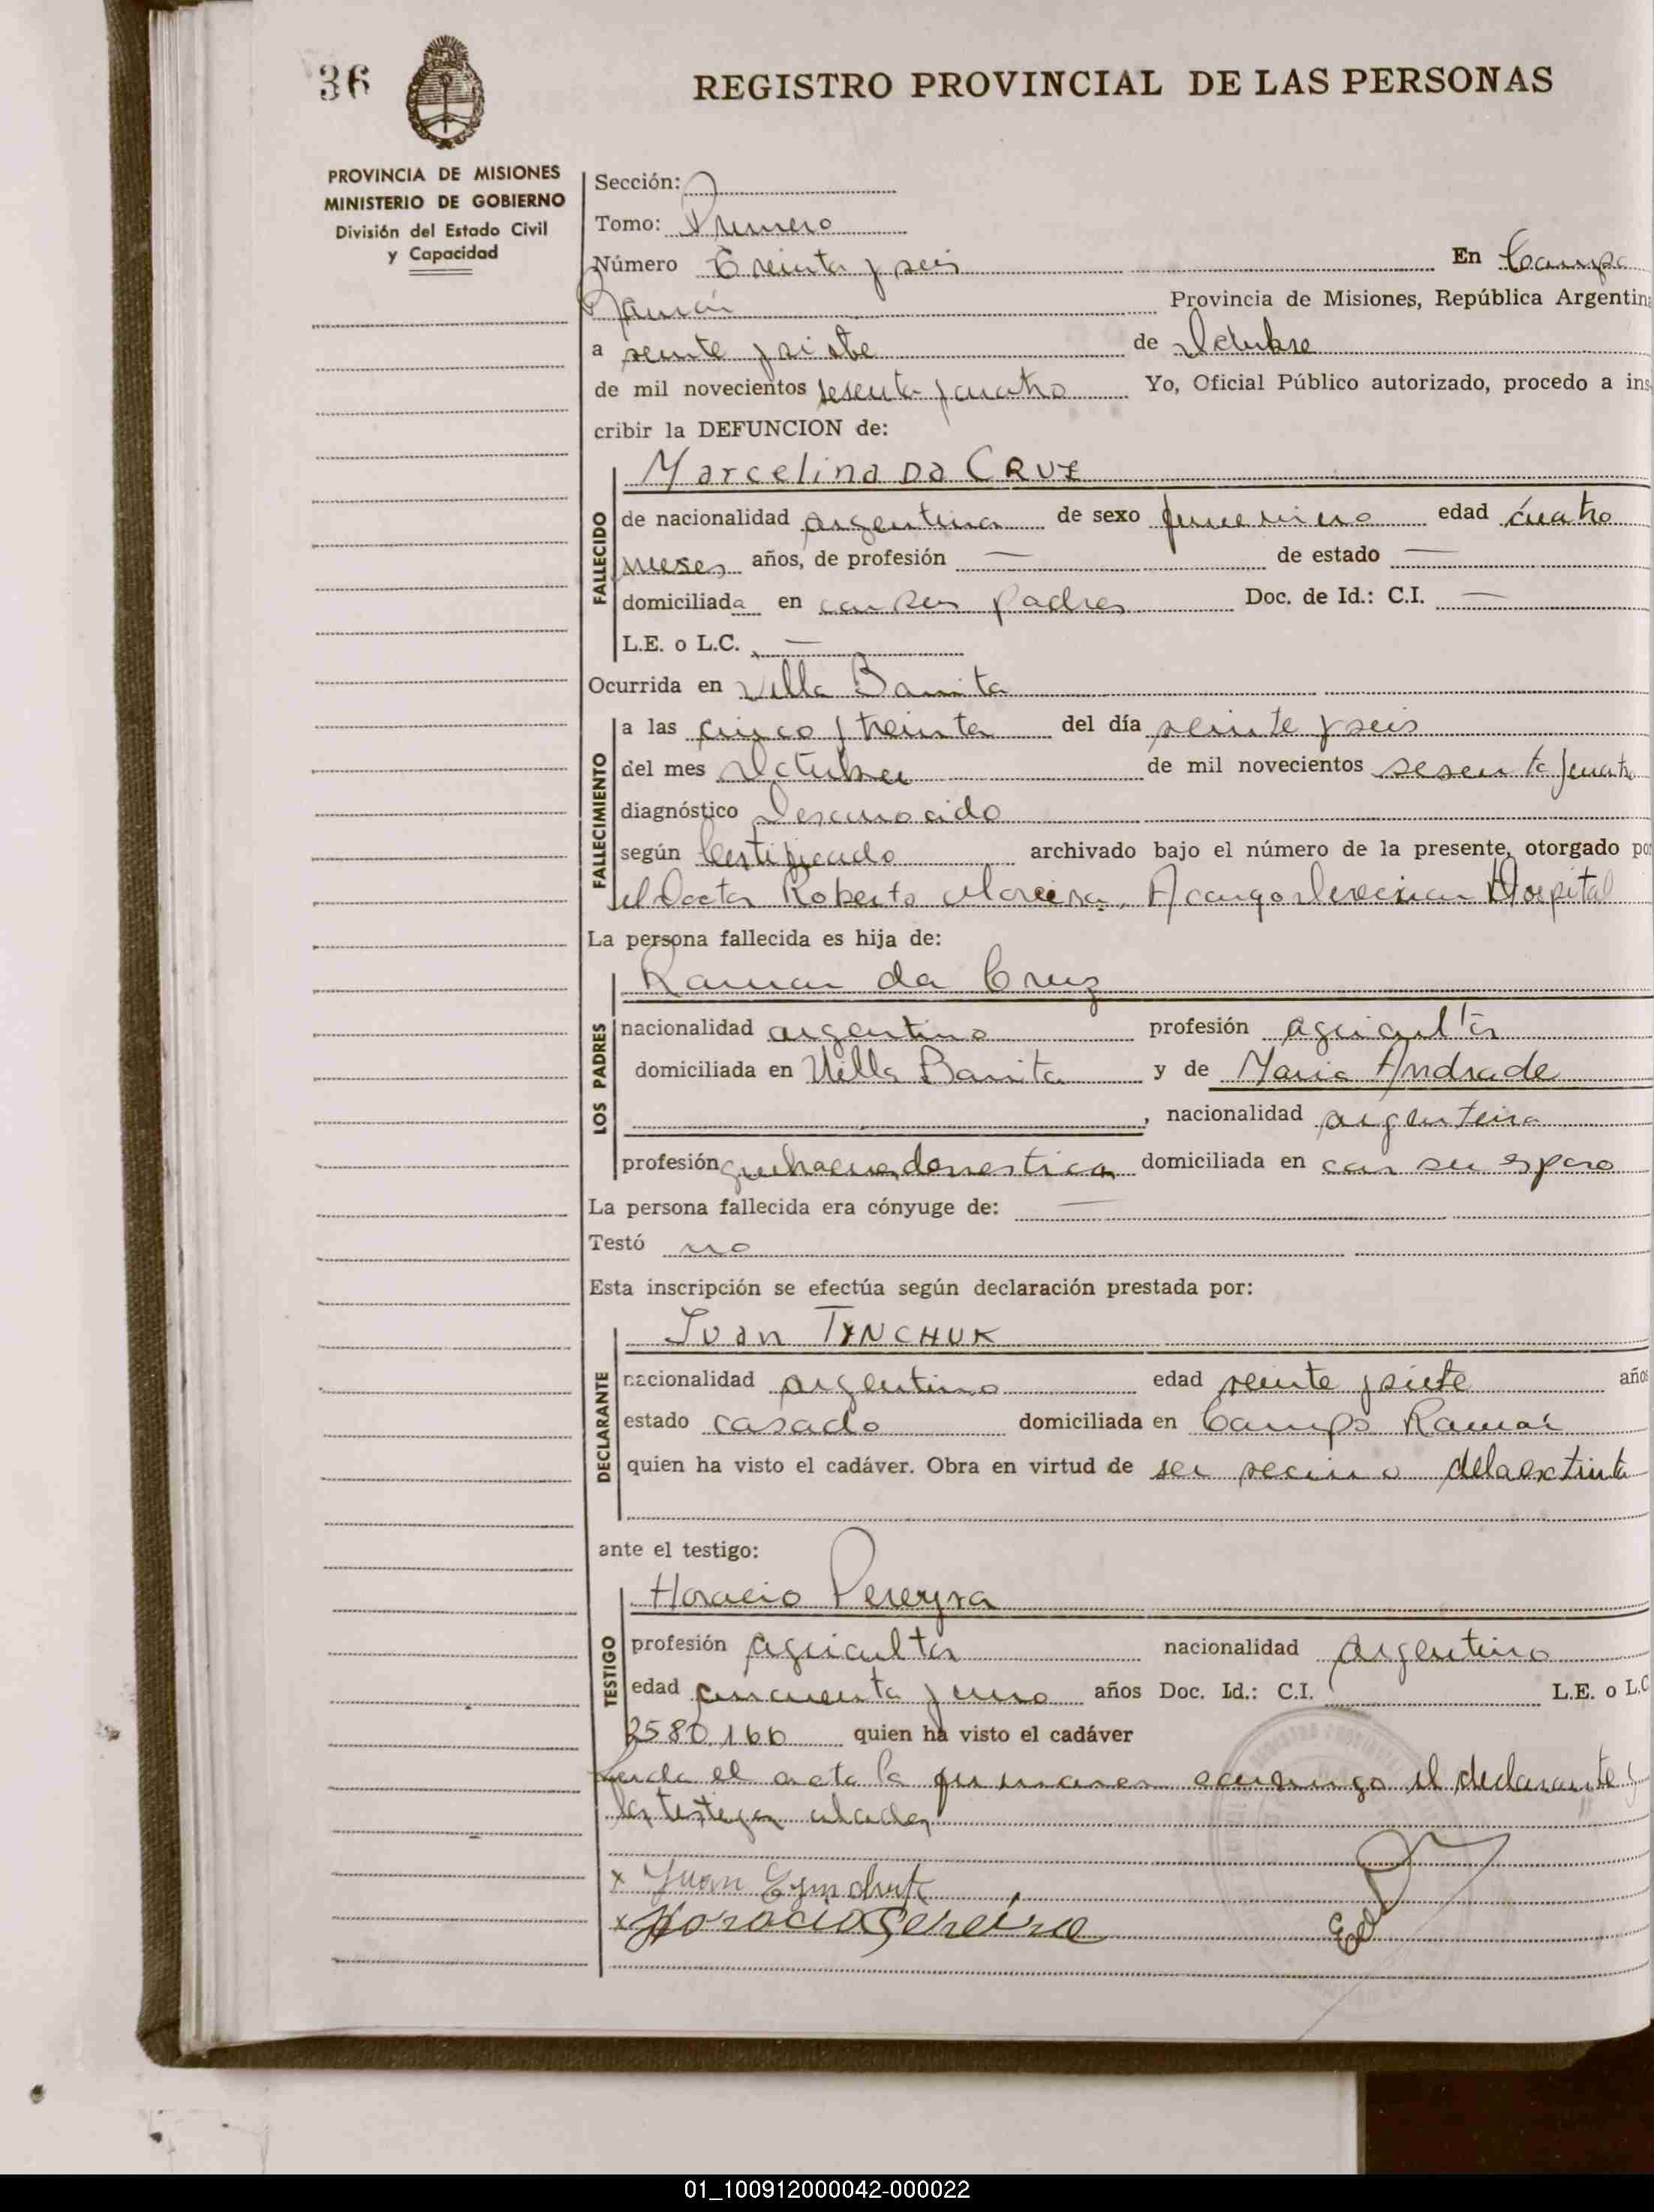 36
REGISTRO PROVINCIAL DE LAS PERSONAS
PROVINCIA DE MISIONES
MINISTERIO DE GOBIERNO
División del Estado Civil
y Capacidad
Sección:
Tomo: Primero
Número Treinta y seis En Campo
Ramón Provincia de Misiones, República Argentin
a veinte y siete de Octubre
de mil novecientos sesenta y cuatro Yo, Oficial Público autorizado, procedo a ins
cribir la DEFUNCION de:
Marcelina DA CRUZ
FALLECIDO
de nacionalidad argentina de sexo femenino edad cuatro
meses años, de profesión — de estado —
domiciliada en con sus padres Doc. de Id.: C.I. —
L.E. o L.C. —
Ocurrida en Villa Bonita
FALLECIMIENTO
a las cinco y treinta del día veinte y seis
del mes Octubre de mil novecientos sesenta y cuatro
diagnóstico Desconocido
según Certificado archivado bajo el número de la presente, otorgado po
el Doctor Roberto Moreira, A cargo Dirección Hospital
La persona fallecida es hija de:
Ramon da Cruz
LOS PADRES
nacionalidad argentino profesión agricultor
domiciliada en Villa Bonita y de Maria Andrade
, nacionalidad argentina
profesión quehaceres domesticos domiciliada en con su esposo
La persona fallecida era cónyuge de: —
Testó no
Esta inscripción se efectúa según declaración prestada por:
Juan TYNCHUK
DECLARANTE
nacionalidad argentino edad veinte y siete años
estado casado domiciliada en Campo Ramón
quien ha visto el cadáver. Obra en virtud de ser vecino de la extinta
ante el testigo:
Horacio Pereyra
TESTIGO
profesión agricultor nacionalidad Argentino
edad cincuenta y uno años Doc. Id.: C.I. L.E. o L.C
2580.166 quien ha visto el cadáver
Leida el acta la firmaron conmigo el declarante y
los testigos citados
x Juan Tynchuk
x Horacio Pereira
01_100912000042-000022